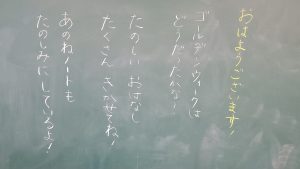 おはようございます!
ゴールデンウィークは
どうだったかな?
たのしい おはなし
たくさん きかせてね!
あのねノートも
たのしみにしているよ!